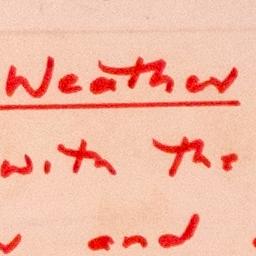 Weather
with the
and